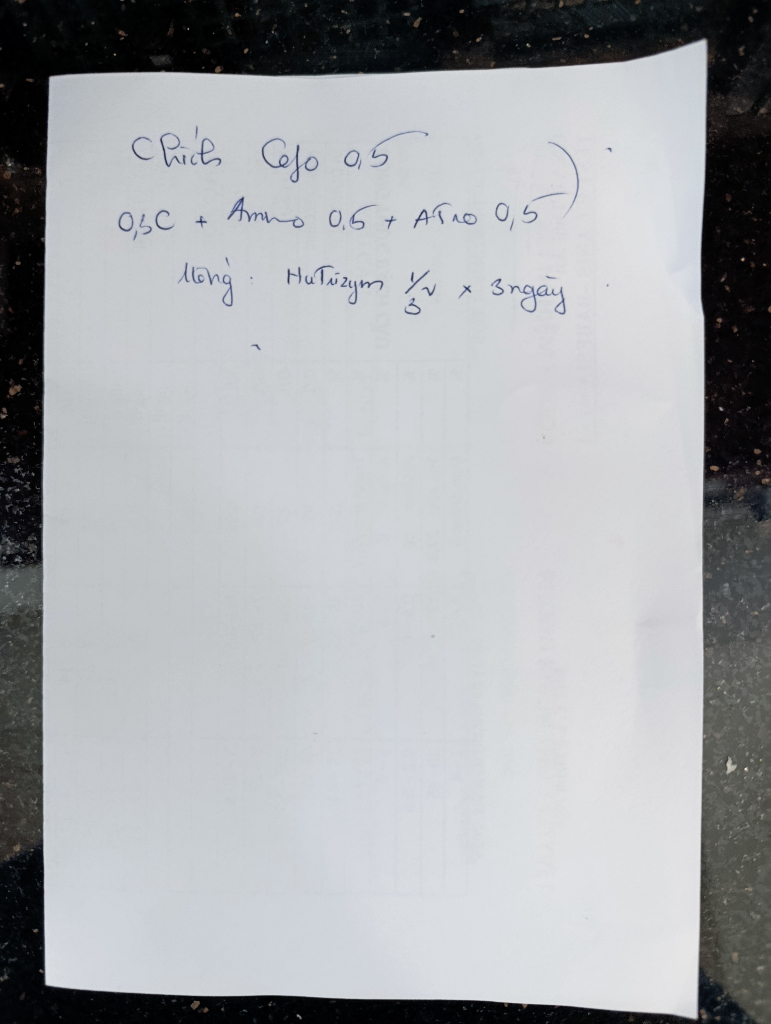 Chích Cefo 0,5
0,5C + Amino 0.5 + ATro 0,5
Uống: HuTizym 1/3v x 3 ngày